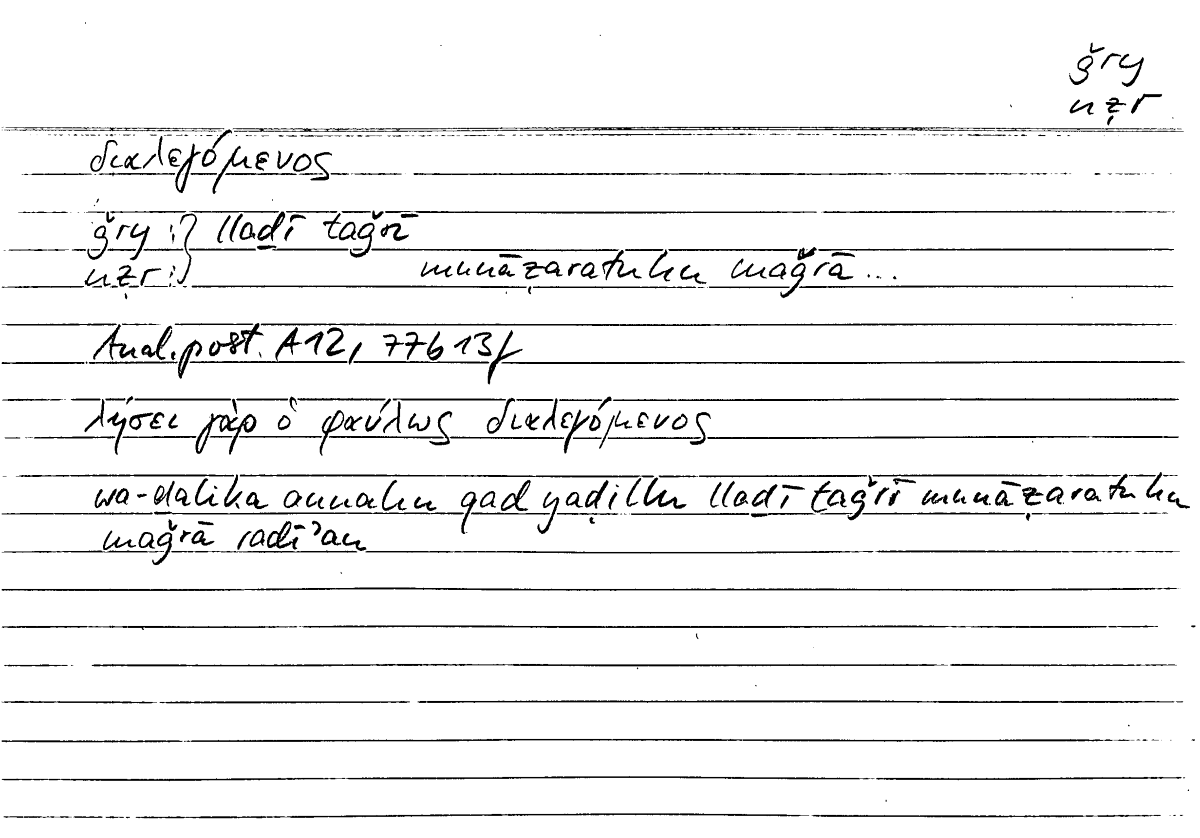 ǧry
nẓr
διαλεγόμενος
ǧry :} llaḏī taǧrī
nẓr :} munāẓaratuhu maǧrā ...
Anal. post. A12, 77b13f
λήσει γὰρ ὁ φαύλως διαλεγόμενος
wa-ḏalika annahu qad yaḍillu llaḏī taǧrī munāẓaratuhu
maǧrā radīʾan